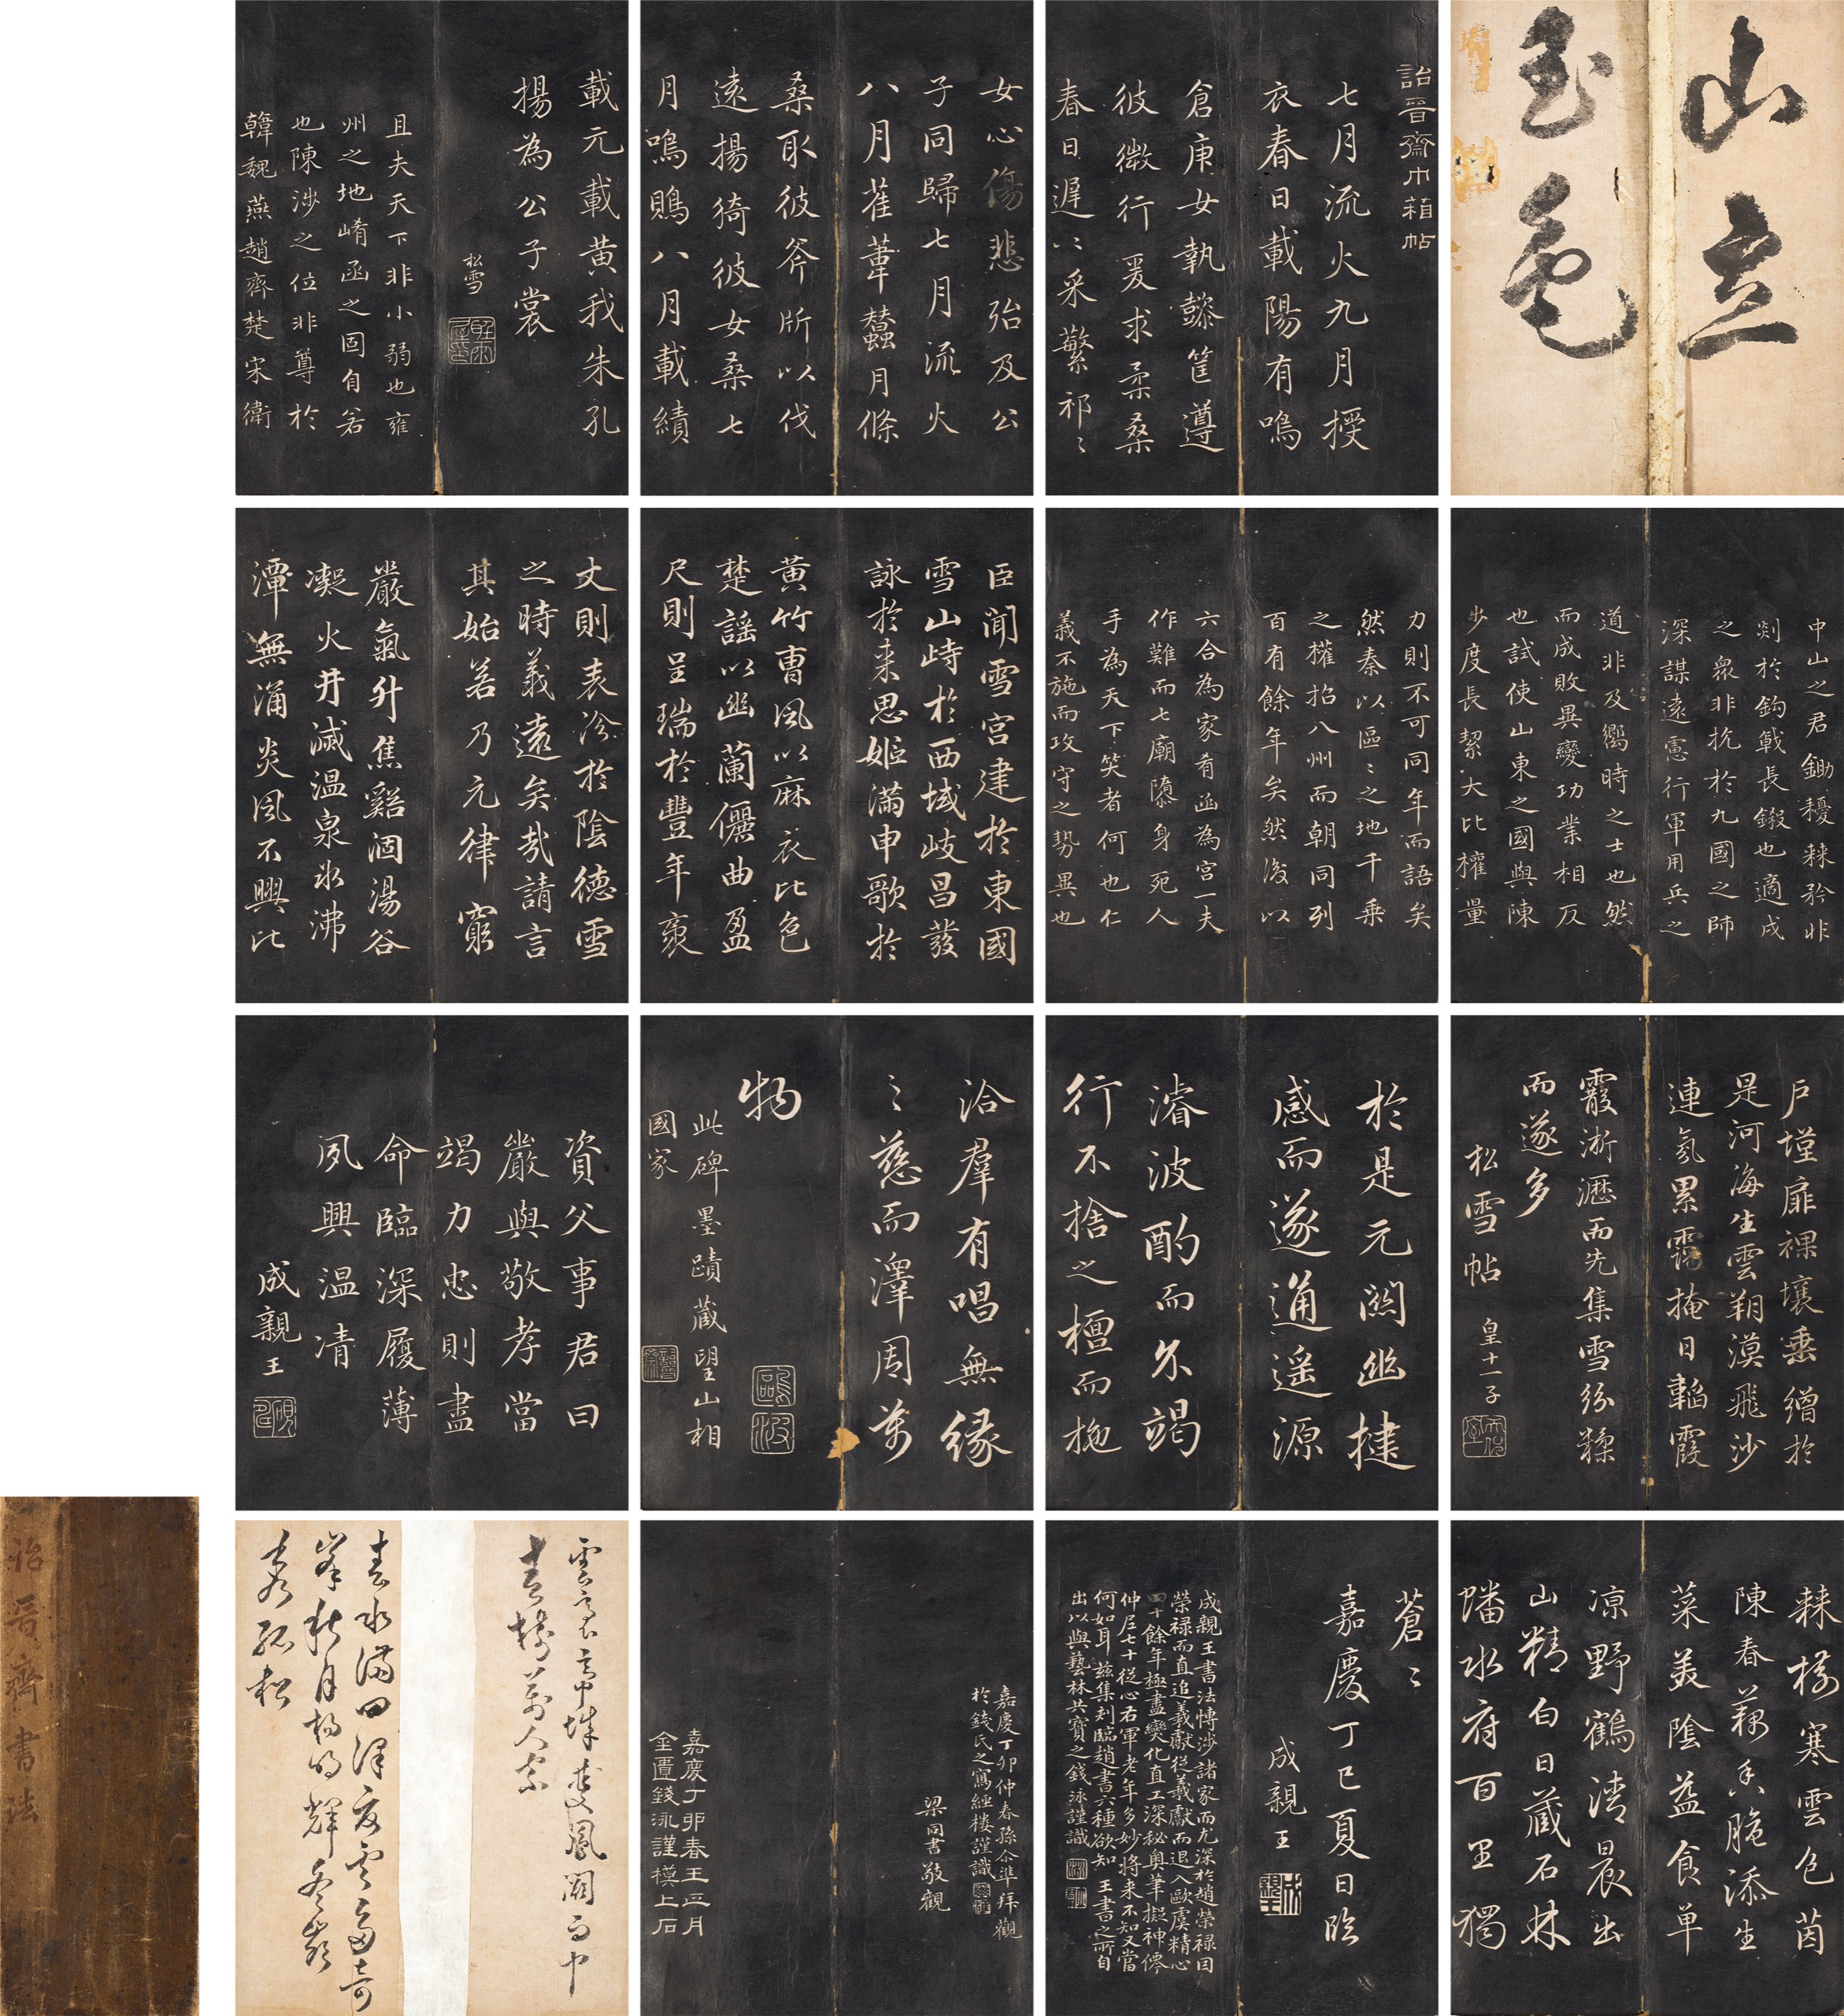 山立
玉色
詒晉齋巾箱帖
七月流火九月授
衣春日載陽有鳴
倉庚女執懿筐遵
彼微行爰求柔桑
春日遲〻采蘩祁〻
女心傷悲殆及公
子同歸七月流火
八月萑葦蠶月條
桑取彼斧斨以伐
遠揚猗彼女桑七
月鳴鵙八月載績
載元載黃我朱孔
揚為公子裳
松雪
且夫天下非小弱也雍
州之地崤函之固自若
也陳涉之位非尊於
韓魏燕趙齊楚宋衛
中山之君鋤耰棘矜非
剡於鉤戟長鎩也適戍
之眾非抗於九國之師
深謀遠慮行軍用兵之
道非及嚮時之士也然
而成敗異變功業相反
也試使山東之國與陳
涉度長絜大比權量
力則不可同年而語矣
然秦以區〻之地千乘
之權招八州而朝同列
百有餘年矣然後以
六合為家崤函為宮一夫
作難而七廟隳身死人
手為天下笑者何也仁
義不施而攻守之勢異也
臣聞雪宮建於東國
雪山峙於西域岐昌發
詠於来思姬滿申歌於
黃竹曹風以麻衣比色
楚謠以幽蘭儷曲盈
尺則呈瑞於豐年袤
丈則表沴於陰德雪
之時義遠矣哉請言
其始若乃元律窮
嚴氣升焦谿涸湯谷
凝火井滅温泉冰沸
潭無涌炎風不興北
戶墐扉裸壤垂繒於
是河海生雲朔漠飛沙
連氛累靄掩日韜霞
霰淅瀝而先集雪紛糅
而遂多
松雪帖
皇十一子
於是元關幽揵
感而遂通遥源
濬波酌而不竭
行不捨之檀而施
洽羣有唱無緣
〻慈而澤周萬
物
此碑墨蹟藏望山相
國家
資父事君曰
嚴與敬孝當
竭力忠則盡
命臨深履薄
夙興温凊
成親王
棘樹寒雲色茵
陳春藕香脆添生
菜美陰益食單
凉野鶴清晨出
山精白日藏石林
蟠水府百里獨
蒼〻
嘉慶丁巳夏日臨
成親王
成親王書法博涉諸家而尤深於趙榮禄因
榮禄而直追羲獻從羲獻而退入歐虞精心
四十餘年極盡變化直工深秘奥筆擬神僊
仲尼七十從心右軍老年多妙將来不知又當
何如耳兹集刻臨趙書六種欲知 王書之所自
出以與藝林共寶之錢泳謹識
嘉慶丁卯仲春孫仚準拜觀
於錢氏之寫經樓謹識
梁同書敬觀
嘉慶丁卯春王正月
金匱錢泳謹模上石
雲裏帝城雙鳳闕雨中
春樹萬人家
春水滿四澤夏雲多奇
峯秋月揚明輝冬嶺
秀孤松
詒晉齋書法